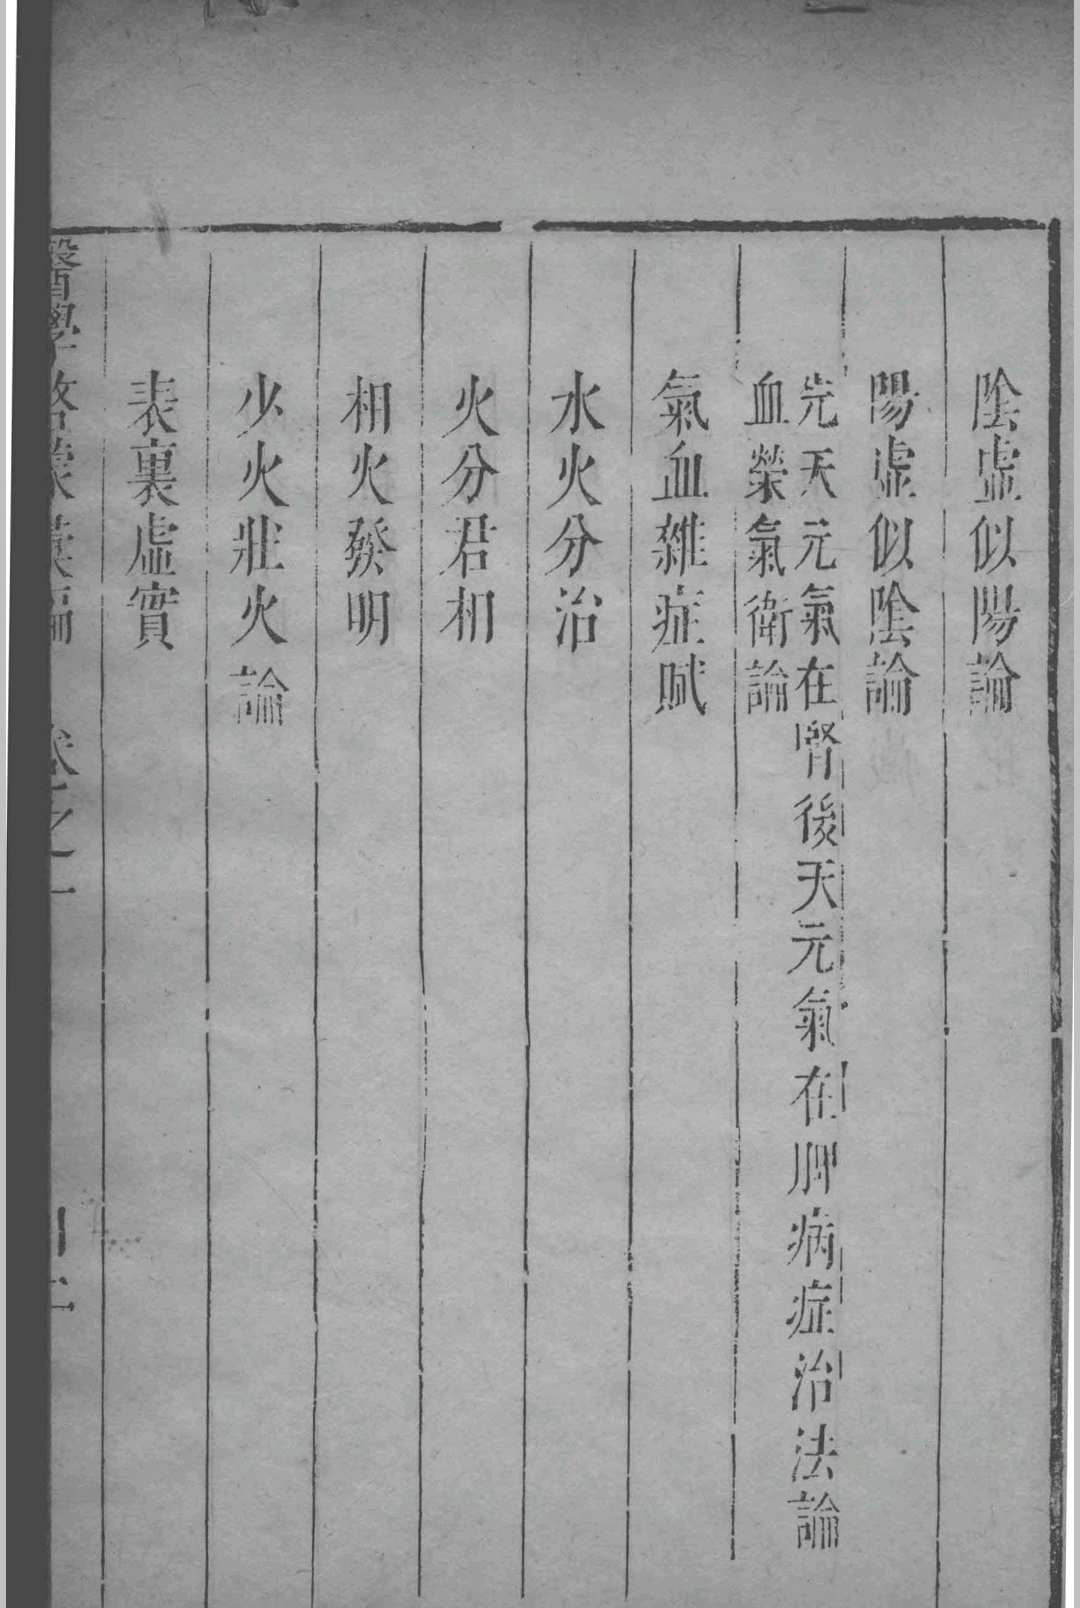 陰虛似陽論
陽虛似陰論
先天元氣在腎後天元氣在脾病症治法論
血榮氣衛論
氣血雜症賦
水火分治
火分君相
相火發明
少火壯火論
表裏虛實
醫學啓蒙彙編 卷之一